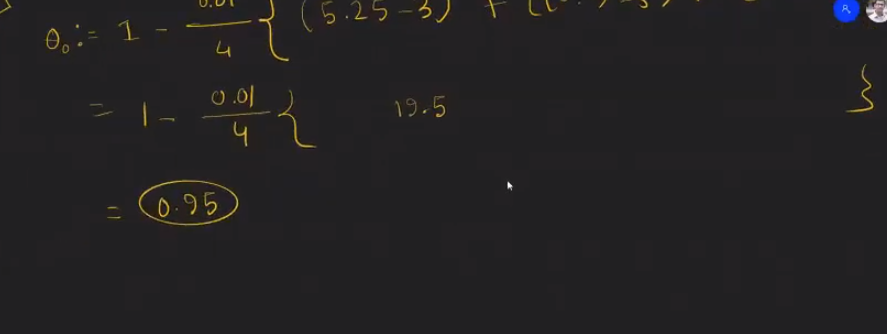 θ₀ := 1 - 0.01/4 { (5.25-3) + (
= 1 - 0.01/4 { 19.5 }
= 0.95